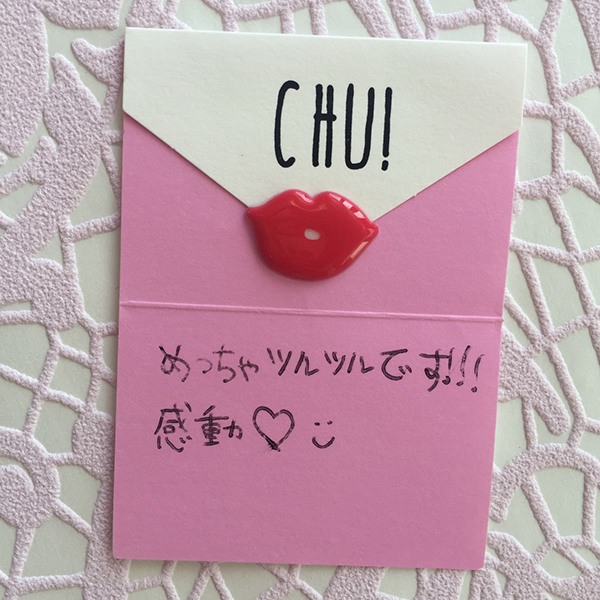 CHU!
めっちゃツルツルです!!!
感動♡ :)